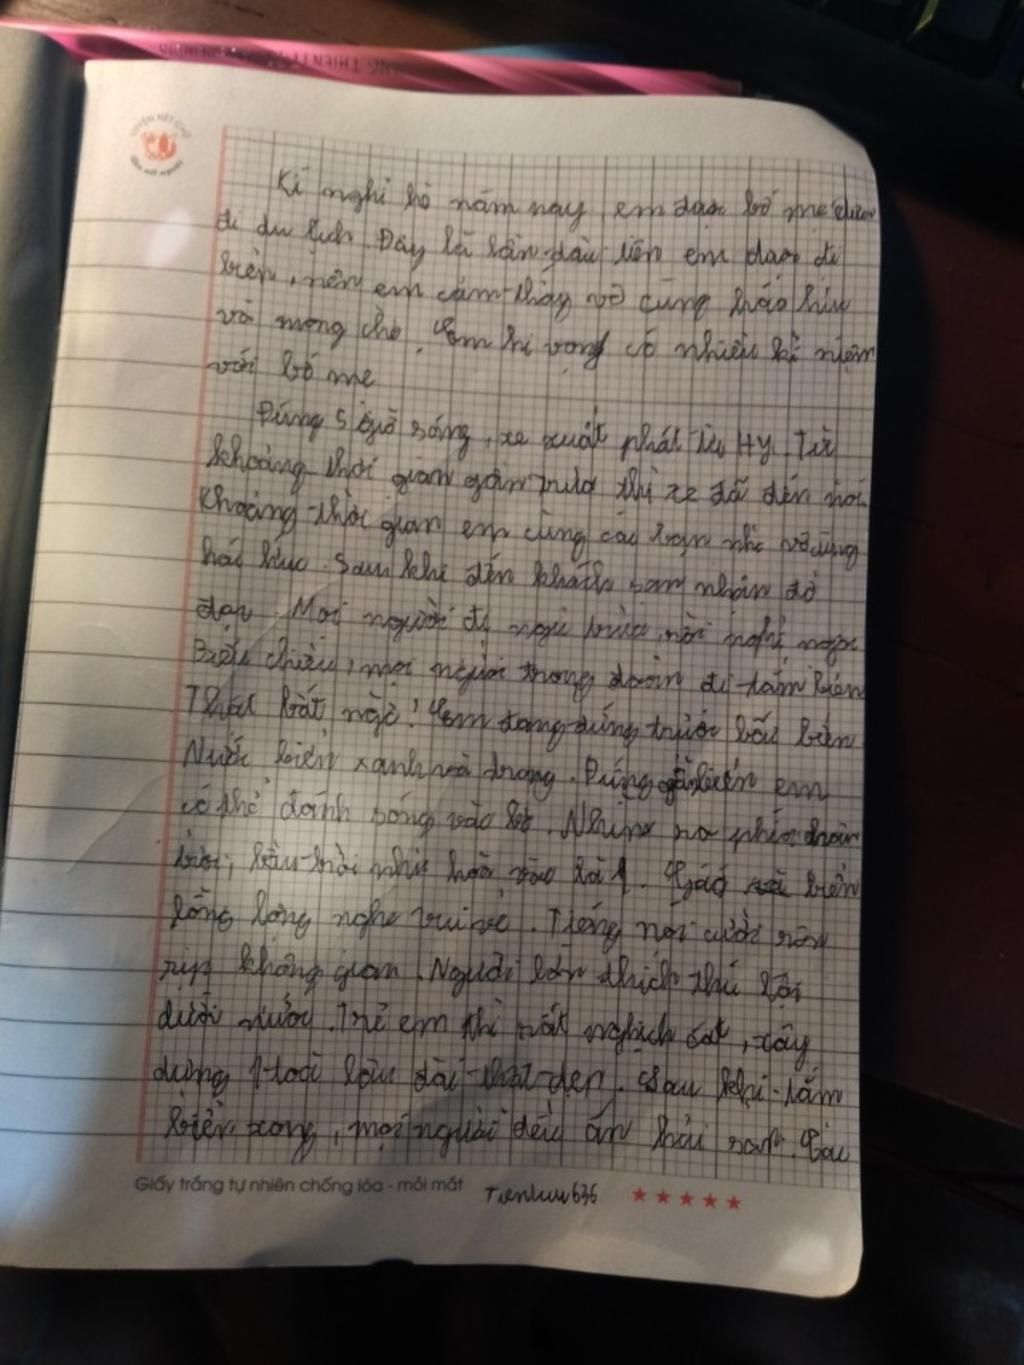 LUYỆN NÉT CHỮ
Kì nghỉ hè năm nay em được bố mẹ đưa
đi du lịch. Đây là lần đầu tiên em được đi
biển, nên em cảm thấy vô cùng háo hức
và mong chờ. Em hi vọng có nhiều kỉ niệm
với bố mẹ
Đúng 5 giờ sáng, xe xuất phát từ HY. Từ
khoảng thời gian gần trưa thì xe đã đến nơi
Khoảng thời gian em cùng các bạn nhỏ vô cùng
háo hức. Sau khi đến khách sạn nhận đồ
đạc. Mọi người đi ngủ trưa, rồi nghỉ ngơi
Buổi chiều, mọi người trong đoàn đi tắm biển
Thật bất ngờ! Em đang đứng trước bãi biển
Nước biển xanh và trong. Đứng gần biển em
có thể đánh sóng vào bờ. Nhìn ra phía chân
trời, bầu trời như hoà vào là 1. Gió biển
lồng lộng nghe vui vẻ. Tiếng nói cười rộn
rịp không gian. Người lớn thích thú lội
dưới nước. Trẻ em thì rất nghịch cát, xây
dựng 1 toà lâu đài thật đẹp. Sau khi tắm
biển xong, mọi người đều ăn hải sản. Các
Giấy trắng tự nhiên chống lóa - mỏi mắt
Tienluu636